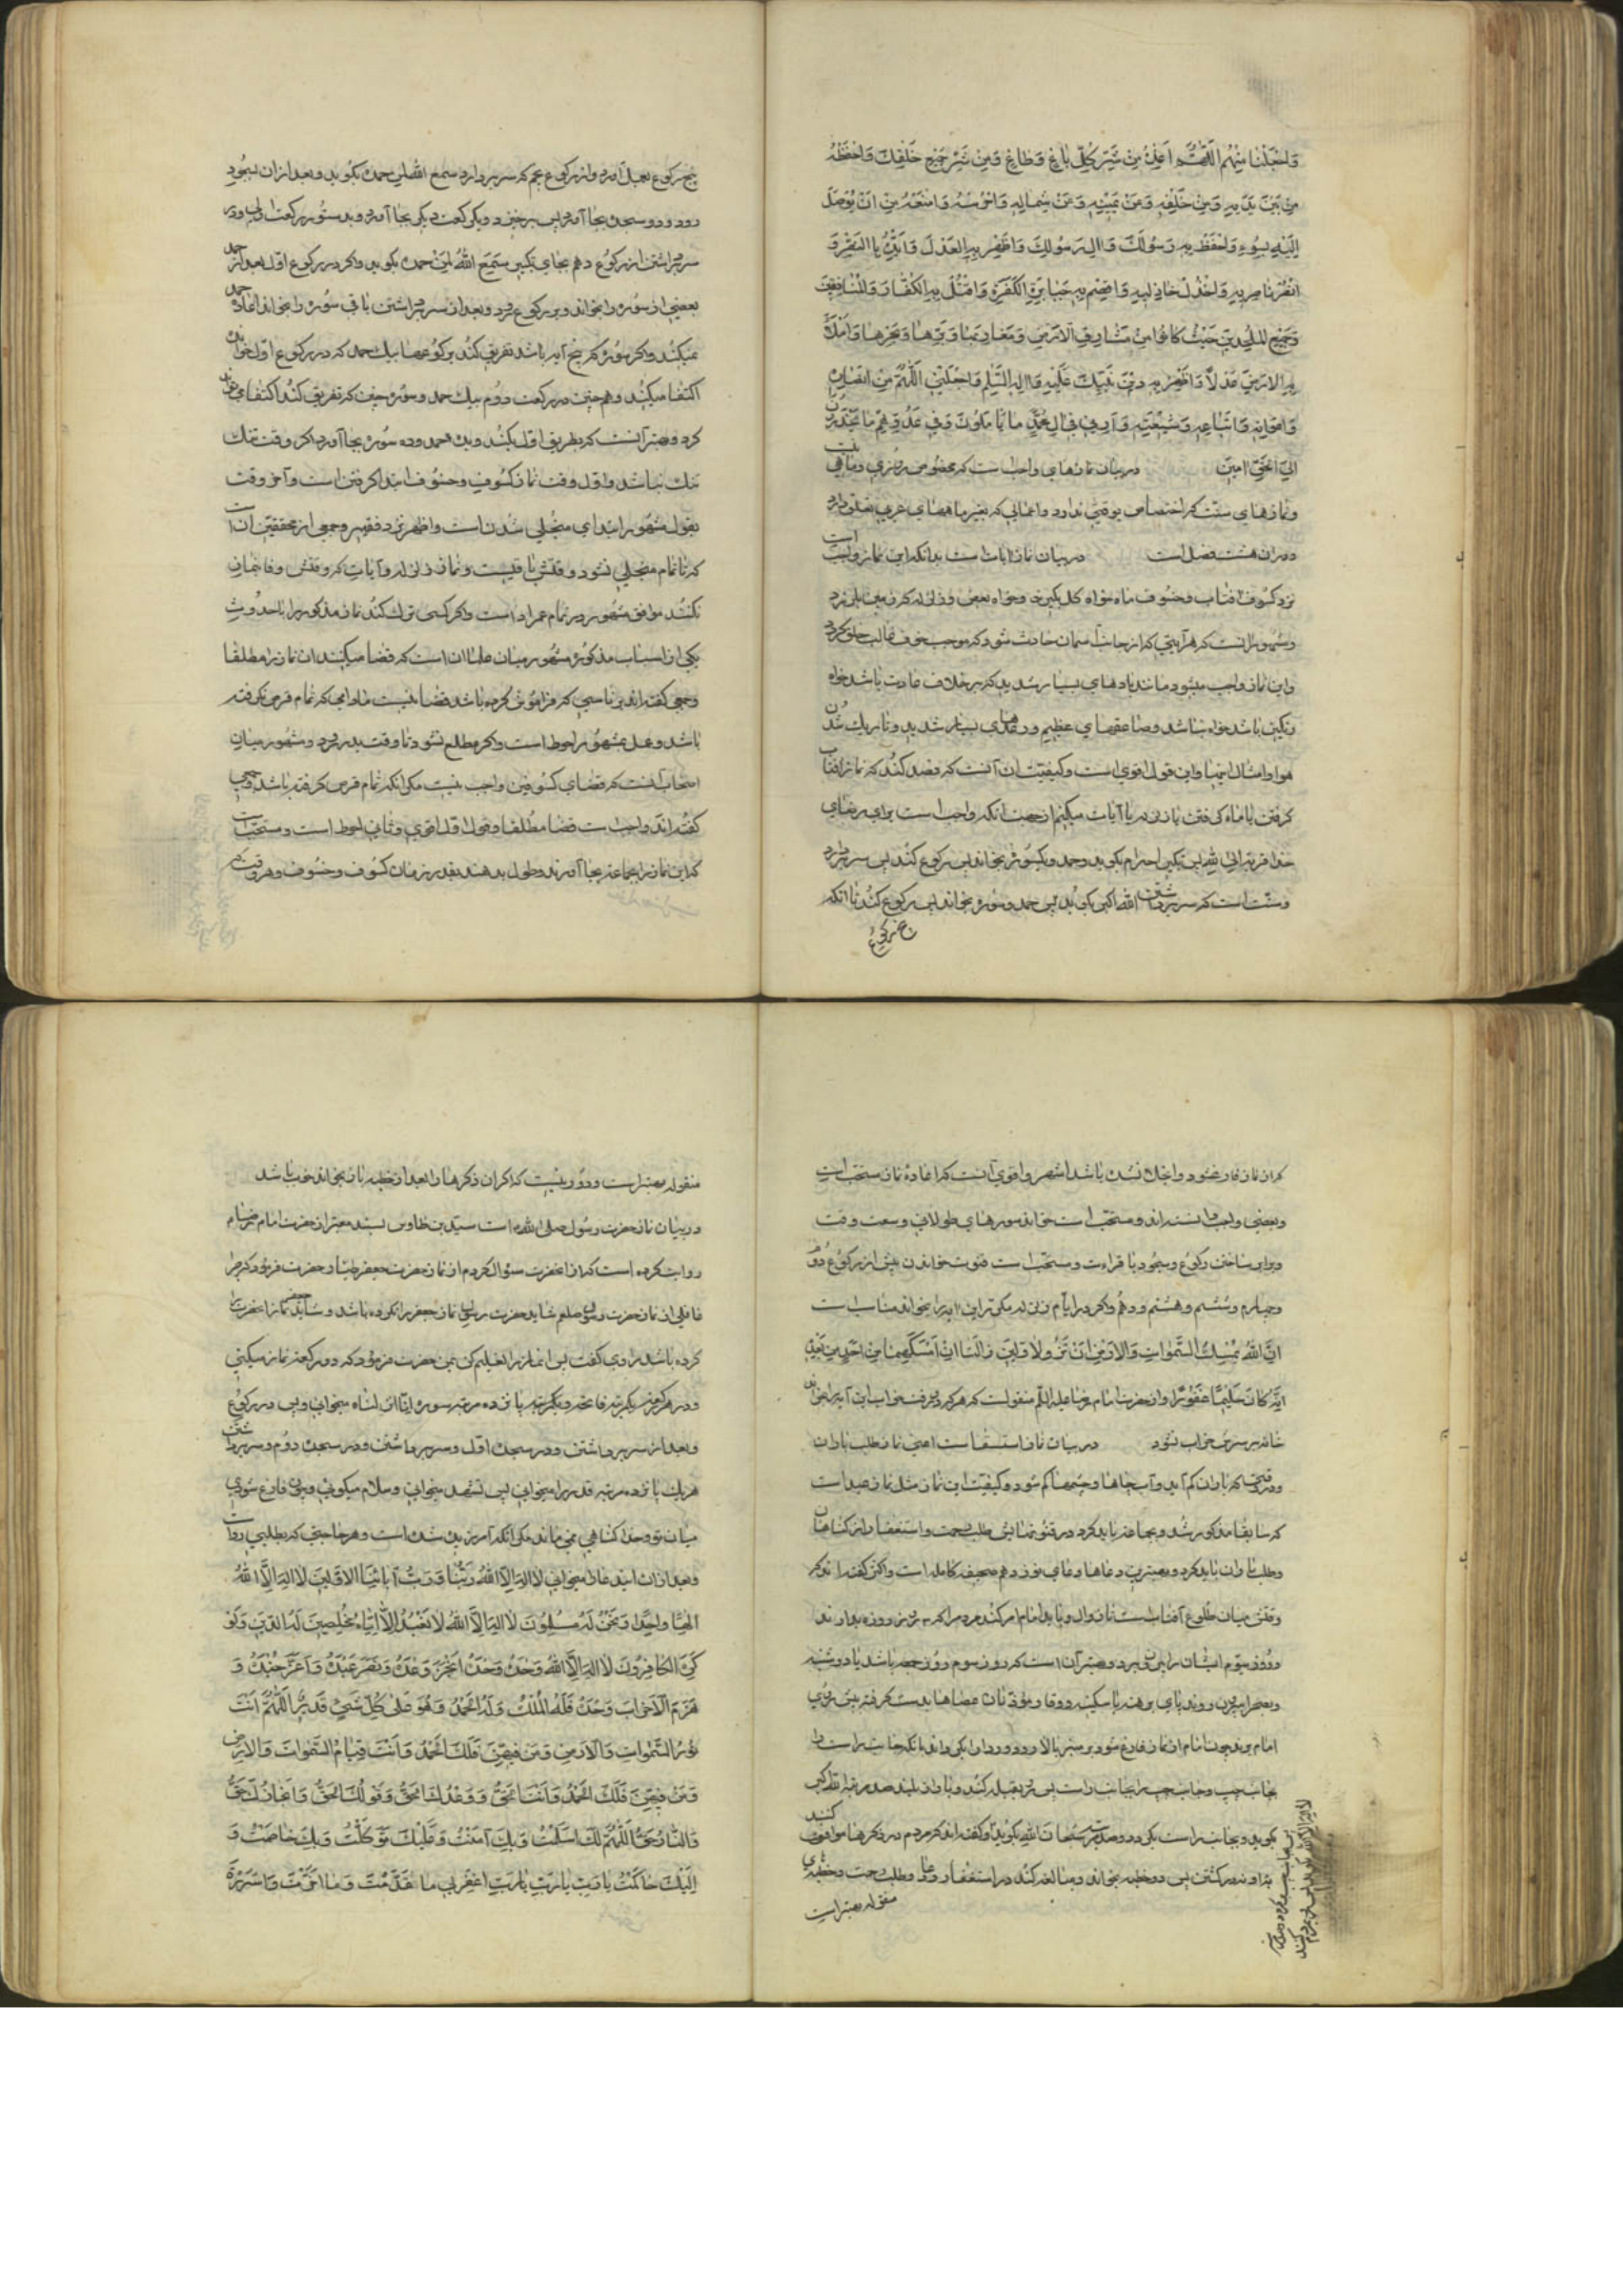 وَاجْعَلْنَا مِنْهُم اَللّٰهُمَّ اَعِذْهُ مِنْ شَرِّ كُلِّ بٰاغٍ وَطٰاغٍ وَمِنْ شَرِّ جَمِيْعِ خَلْقِكَ وَاحْفَظْهُ
مِنْ بَيْنِ يَدَيْهِ وَمِنْ خَلْفِهِ وَعَنْ يَمِيْنِهِ وَعَنْ شِمٰالِهِ وَاحْرُسْهُ وَامْنَعْهُ مِنْ اَنْ يُوْصَلَ
اِلَيْهِ بِسُوْءٍ وَاحْفَظْ بِهِ رَسُوْلَكَ وَاٰلَ رَسُوْلِكَ وَاَظْهِرْ بِهِ الْعَدْلَ وَاَيِّدْهُ بِالنَّصْرِ وَ
انْصُرْ نٰاصِرِيْهِ وَاخْذُلْ خٰاذِلِيْهِ وَاقْصِمْ بِهِ جَبٰابِرَةَ الْكَفَرَةِ وَاقْتُلْ بِهِ الْكُفّٰارَ وَالْمُنٰافِقِيْنَ
وَجَمِيْعَ الْمُلْحِدِيْنَ حَيْثُ كٰانُوْا مِنْ مَشٰارِقِ الْاَرْضِ وَمَغٰارِبِهٰا وَبَرِّهٰا وَبَحْرِهٰا وَامْلَأْ
بِهِ الْاَرْضَ عَدْلًا وَاَظْهِرْ بِهِ دِيْنَ نَبِيِّكَ عَلَيْهِ وَاٰلِهِ السَّلٰم وَاجْعَلْنِيْ اَللّٰهُمَّ مِنْ اَنْصٰارِهِ
وَاَعْوٰانِهِ وَاَتْبٰاعِهِ وَشِيْعَتِهِ وَاَرِنِيْ فِيْ اٰلِ مُحَمَّدٍ مٰا يَأْمُلُوْنَ وَفِيْ عَدُوِّهِمْ مٰا يَحْذَرُوْنَ
اِلٰهَ الْحَقِّ اٰمِيْنَ در بيان نمازهاي واجب است كه مخصوص روزي و ماهي نيست
و نمازهاي سنت كه اختصاص بوقتي ندارد و اعمالي كه بغير ماههاي عربي تعلق دارد
و در ان هشت فصل است در بيان نماز ايات است بدانكه اين نماز واجب است
نزد كسوف افتاب و خسوف ماه خواه كل بگيرد و خواه بعض و زلزله كه زمين بلرزد
و مشهور انست كه هر آيتي كه از جانب اسمان حادث شود كه موجب خوف غالب خلق گردد
و اين نماز واجب ميشود مانند بادهاي بسيار شديد كه بر خلاف عادت باشد خواه
رنگين باشد خواه نباشد و صاعقهاي عظيم و رعدهاي بسيار شديد و تاريك شدن
هوا و امثال اينها و اين قول اقوي است و كيفيت ان آنست كه قصد كند كه نماز افتاب
گرفتن يا ماه گرفتن يا زلزله يا آيات ميكنم از جهت انكه واجب است براي رضاي
خدا قربة الي الله پس تكبير احرام بگويد و حمد و يكسوره بخواند پس ركوع كند پس سر بردارد
و سنت است كه سر برداشتن الله اكبر بگويد پس حمد و سوره بخواند پس ركوع كند تا انكه
پنج ركوع
پنج ركوع بعمل آورد و از ركوع پنجم كه سر بردارد سمع الله لمن حمده بگويد و بعد از ان بسجود
رود و دو سجده بجا آورد پس برخيزد و يك ركعت ديگر بجا آورد بدستور ركعت اول و در
سر برداشتن از ركوع دهم بجاي تكبير سَمِعَ اللّٰهُ لِمَنْ حَمِدَه بگويد و اگر در ركوع اول بعد از حمد
بعضي از سوره را بخواند و بركوع رود و بعد از سر برداشتن باقي سوره را بخواند اعاده حمد
نميكند و اگر سوره كه پنج آيه باشد تفريق كند بر ركوعها بيك حمد كه در ركوع اول خوانده
اكتفا ميكند و همچنين در ركعت دوم بيك حمد و سوره چنين كه تفريق كند اكتفا ميتواند
كرد و بهتر آنست كه بطريق اول بكند و بده حمد و ده سوره بجا آورد اگر وقت تنگ
تنگ نباشد و اول وقت نماز كسوف و خسوف ابتدا گرفتن است و آخر وقت
بقول مشهور ابتداي منجلي شدن است و اظهر نزد فقير و جمعي از محققين آن است
كه تا تمام منجلي نشود وقتش باقيست و نماز زلزله و آيات كه وقتش وفا بآن
نكند موافق مشهور در تمام عمر اداست و اگر كسي ترك كند نماز مذكور را با حدوث
يكي از اسباب مذكوره مشهور ميان علما انست كه قضا ميكند ان نماز را مطلقا
و جمعي گفته‌اند بر ناسي كه فراموش كرده باشد قضا نيست مادامي كه تمام قرص نگرفته
باشد و عمل بمشهور احوط است و اگر مطلع نشود تا وقت بدر رود و مشهور ميان
اصحاب آنست كه قضاي كسوفين واجب نيست مگر انكه تمام قرص گرفته باشد و جمعي
گفته‌اند واجب است قضا مطلقا و قول اول اقوي و ثاني احوط است و مستحب است
كه اين نماز را بجماعت بجا آورند و طول بدهند بقدر زمان كسوف و خسوف و هر وقت
كه از نماز فارغ شود و انجلا نشده باشد اشهر و اقوي آنست كه اعاده نماز مستحب است
و بعضي واجب دانسته‌اند و مستحب است خواندن سورهاي طولاني و سعت وقت
و برابر ساختن ركوع و سجود با قراءت و مستحب است قنوت خواندن پيش از ركوع دوم
و چهارم و ششم و هشتم و دهم و اگر در ايام زلزله مكرر اين ايه را بخواند مناسب است
اِنَّ اللّٰهَ يُمْسِكُ السَّمٰوٰاتِ وَالْاَرْضَ اَنْ تَزُوْلٰا وَلَئِنْ زٰالَتٰا اِنْ اَمْسَكَهُمٰا مِنْ اَحَدٍ مِنْ بَعْدِهِ
اِنَّهُ كٰانَ حَلِيْمًا غَفُوْرًا و از حضرت امام رضا عليه السلم منقولست كه هر كه در وقت خواب اين آيه را بخواند
خانه بر سرش خراب نشود در بيان نماز استسقا است اعني نماز طلب باران
در وقتي كه باران كم آيد و آب چاهها و چشمها كم شود و كيفيت اين نماز مثل نماز عيد است
كه سابقا مذكور شد و بجماعت بايد كرد و در قنوتهايش طلب رحمت و استغفار از گناهان
و طلب باران بايد كرد و بهترين دعاها دعاي نوزدهم صحيفه كامله است و اكثر گفته‌اند كه
وقتش ميان طلوع آفتاب است تا زوال و بايد امام امر كند مردم را كه سه روز روزه بدارند
و روز سيم ايشان را بيرون برد و بهتر آن است كه روز سوم روز جمعه باشد يا دوشنبه
و بصحرا بيرون روند پاي برهنه با سكينه و وقار و مؤذنان عصاها بدست گرفته پيش روي
امام بروند چون امام از نماز فارغ شود بر منبر بالا رود و ردا را بگرداند بانكه جانب راست را
بجانب چپ و جانب چپ را بجانب راست پس رو بقبله كند و باواز بلند صد مرتبه الله اكبر
بگويد و بجانب راست بگردد و صد مرتبه سُبْحٰانَ اللّٰه بگويد و گفته‌اند كه مردم در ذكرها موافقت كنند
نه در گشتن پس دو خطبه بخواند و مبالغه كند در استغفار و دعا و طلب رحمت و خطبهاي
منقوله بهتر است
منقوله بهتر است و دور نيست كه اگر ان ذكرها را بعد از خطبه نماز بخواند خوب باشد
در بيان نماز حضرت رسول صلي الله است سيد بن طاوس بسند معتبر از حضرت امام رضا
روايت كرده است كه از انحضرت سؤال كردم از نماز حضرت جعفر طيار حضرت فرمود كه چرا
غافلي از نماز حضرت رسول صلعم شايد حضرت رسول نماز جعفر را نكرده باشد و شايد جعفر نماز انحضرت را
نكرده باشد راوي گفت پس انماز را تعليم كن بمن حضرت فرمود كه دو ركعت نماز ميكني
و در هر ركعت يكمرتبه فاتحه و پانزده مرتبه سوره انا انزلناه ميخواني و پس در ركوع
و بعد از سر برداشتن و در سجده اول و سر برداشتن و در سجده دوم و سر برداشتن
هر يك پانزده مرتبه قدر را ميخواني پس تشهد ميخواني و سلام ميگويي و چون فارغ شوي
ميان تو و خدا گناهي نمي‌ماند مگر انكه آمرزيده شده است و هر حاجتي كه بطلبي رواست
و بعد از ان ايندعا را ميخواني لٰا اِلٰهَ اِلَّا اللّٰهُ رَبُّنٰا وَرَبُّ آبٰائِنَا الْاَوَّلِيْنَ لٰا اِلٰهَ اِلَّا اللّٰهُ
اِلٰهًا وٰاحِدًا وَنَحْنُ لَهُ مُسْلِمُوْنَ لٰا اِلٰهَ اِلَّا اللّٰهُ لٰا نَعْبُدُ اِلَّا اِيّٰاهُ مُخْلِصِيْنَ لَهُ الدِّيْنَ وَلَوْ
كَرِهَ الْكٰافِرُوْنَ لٰا اِلٰهَ اِلَّا اللّٰهُ وَحْدَهُ وَحْدَهُ اَنْجَزَ وَعْدَهُ وَنَصَرَ عَبْدَهُ وَاَعَزَّ جُنْدَهُ وَ
هَزَمَ الْاَحْزٰابَ وَحْدَهُ فَلَهُ الْمُلْكُ وَلَهُ الْحَمْدُ وَهُوَ عَلٰى كُلِّ شَيْءٍ قَدِيْرٌ اَللّٰهُمَّ اَنْتَ
نُوْرُ السَّمٰوٰاتِ وَالْاَرْضِ وَمَنْ فِيْهِنَّ فَلَكَ الْحَمْدُ وَاَنْتَ قَيّٰامُ السَّمٰوٰاتِ وَالْاَرْضِ
وَمَنْ فِيْهِنَّ فَلَكَ الْحَمْدُ وَاَنْتَ الْحَقُّ وَوَعْدُكَ الْحَقُّ وَقَوْلُكَ الْحَقُّ وَاِنْجٰازُكَ حَقٌّ
وَالنّٰارُ حَقٌّ اَللّٰهُمَّ لَكَ اَسْلَمْتُ وَبِكَ آمَنْتُ وَعَلَيْكَ تَوَكَّلْتُ وَبِكَ خٰاصَمْتُ وَ
اِلَيْكَ حٰاكَمْتُ يٰا رَبِّ يٰا رَبِّ يٰا رَبِّ اغْفِرْ لِيْ مٰا قَدَّمْتُ وَمٰا اَخَّرْتُ وَاَسْرَرْتُ